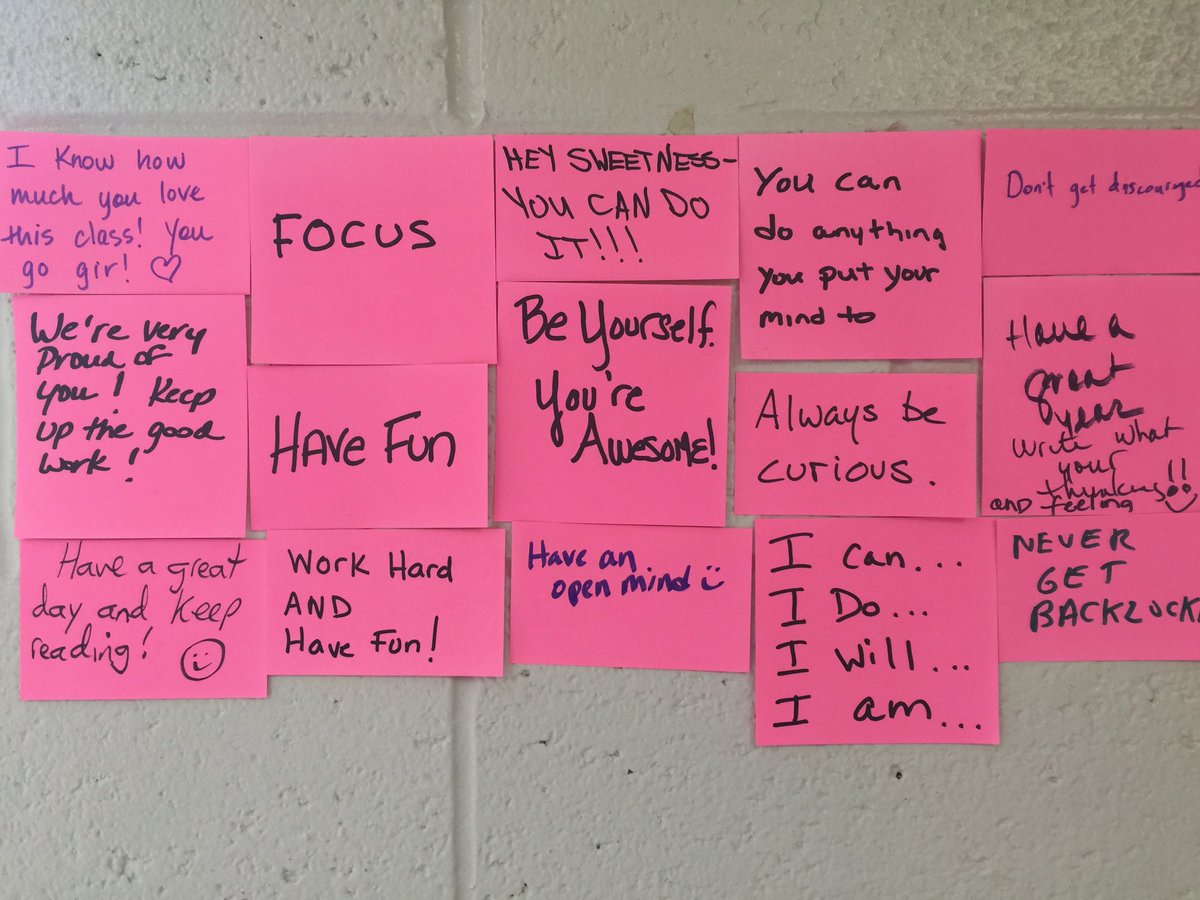 I know how
much you love
this class! You
go gir!
FOCUS
HEY SWEETNESS-
YOU CAN DO
IT!!!
You can
do anything
you put your
mind to
Don't get discouraged
We're very
Proud of
you! Keep
up the good
work!
HAVE FUN
Be Yourself.
You're
Awesome!
Always be
curious.
Have a
great
year
write what
your
thinking!!
and feeling
Have a great
day and keep
reading!
WORK HARD
AND
HAVE FUN!
Have an
open mind
I can...
I Do...
I will...
I am...
NEVER
GET
BACKLOCK